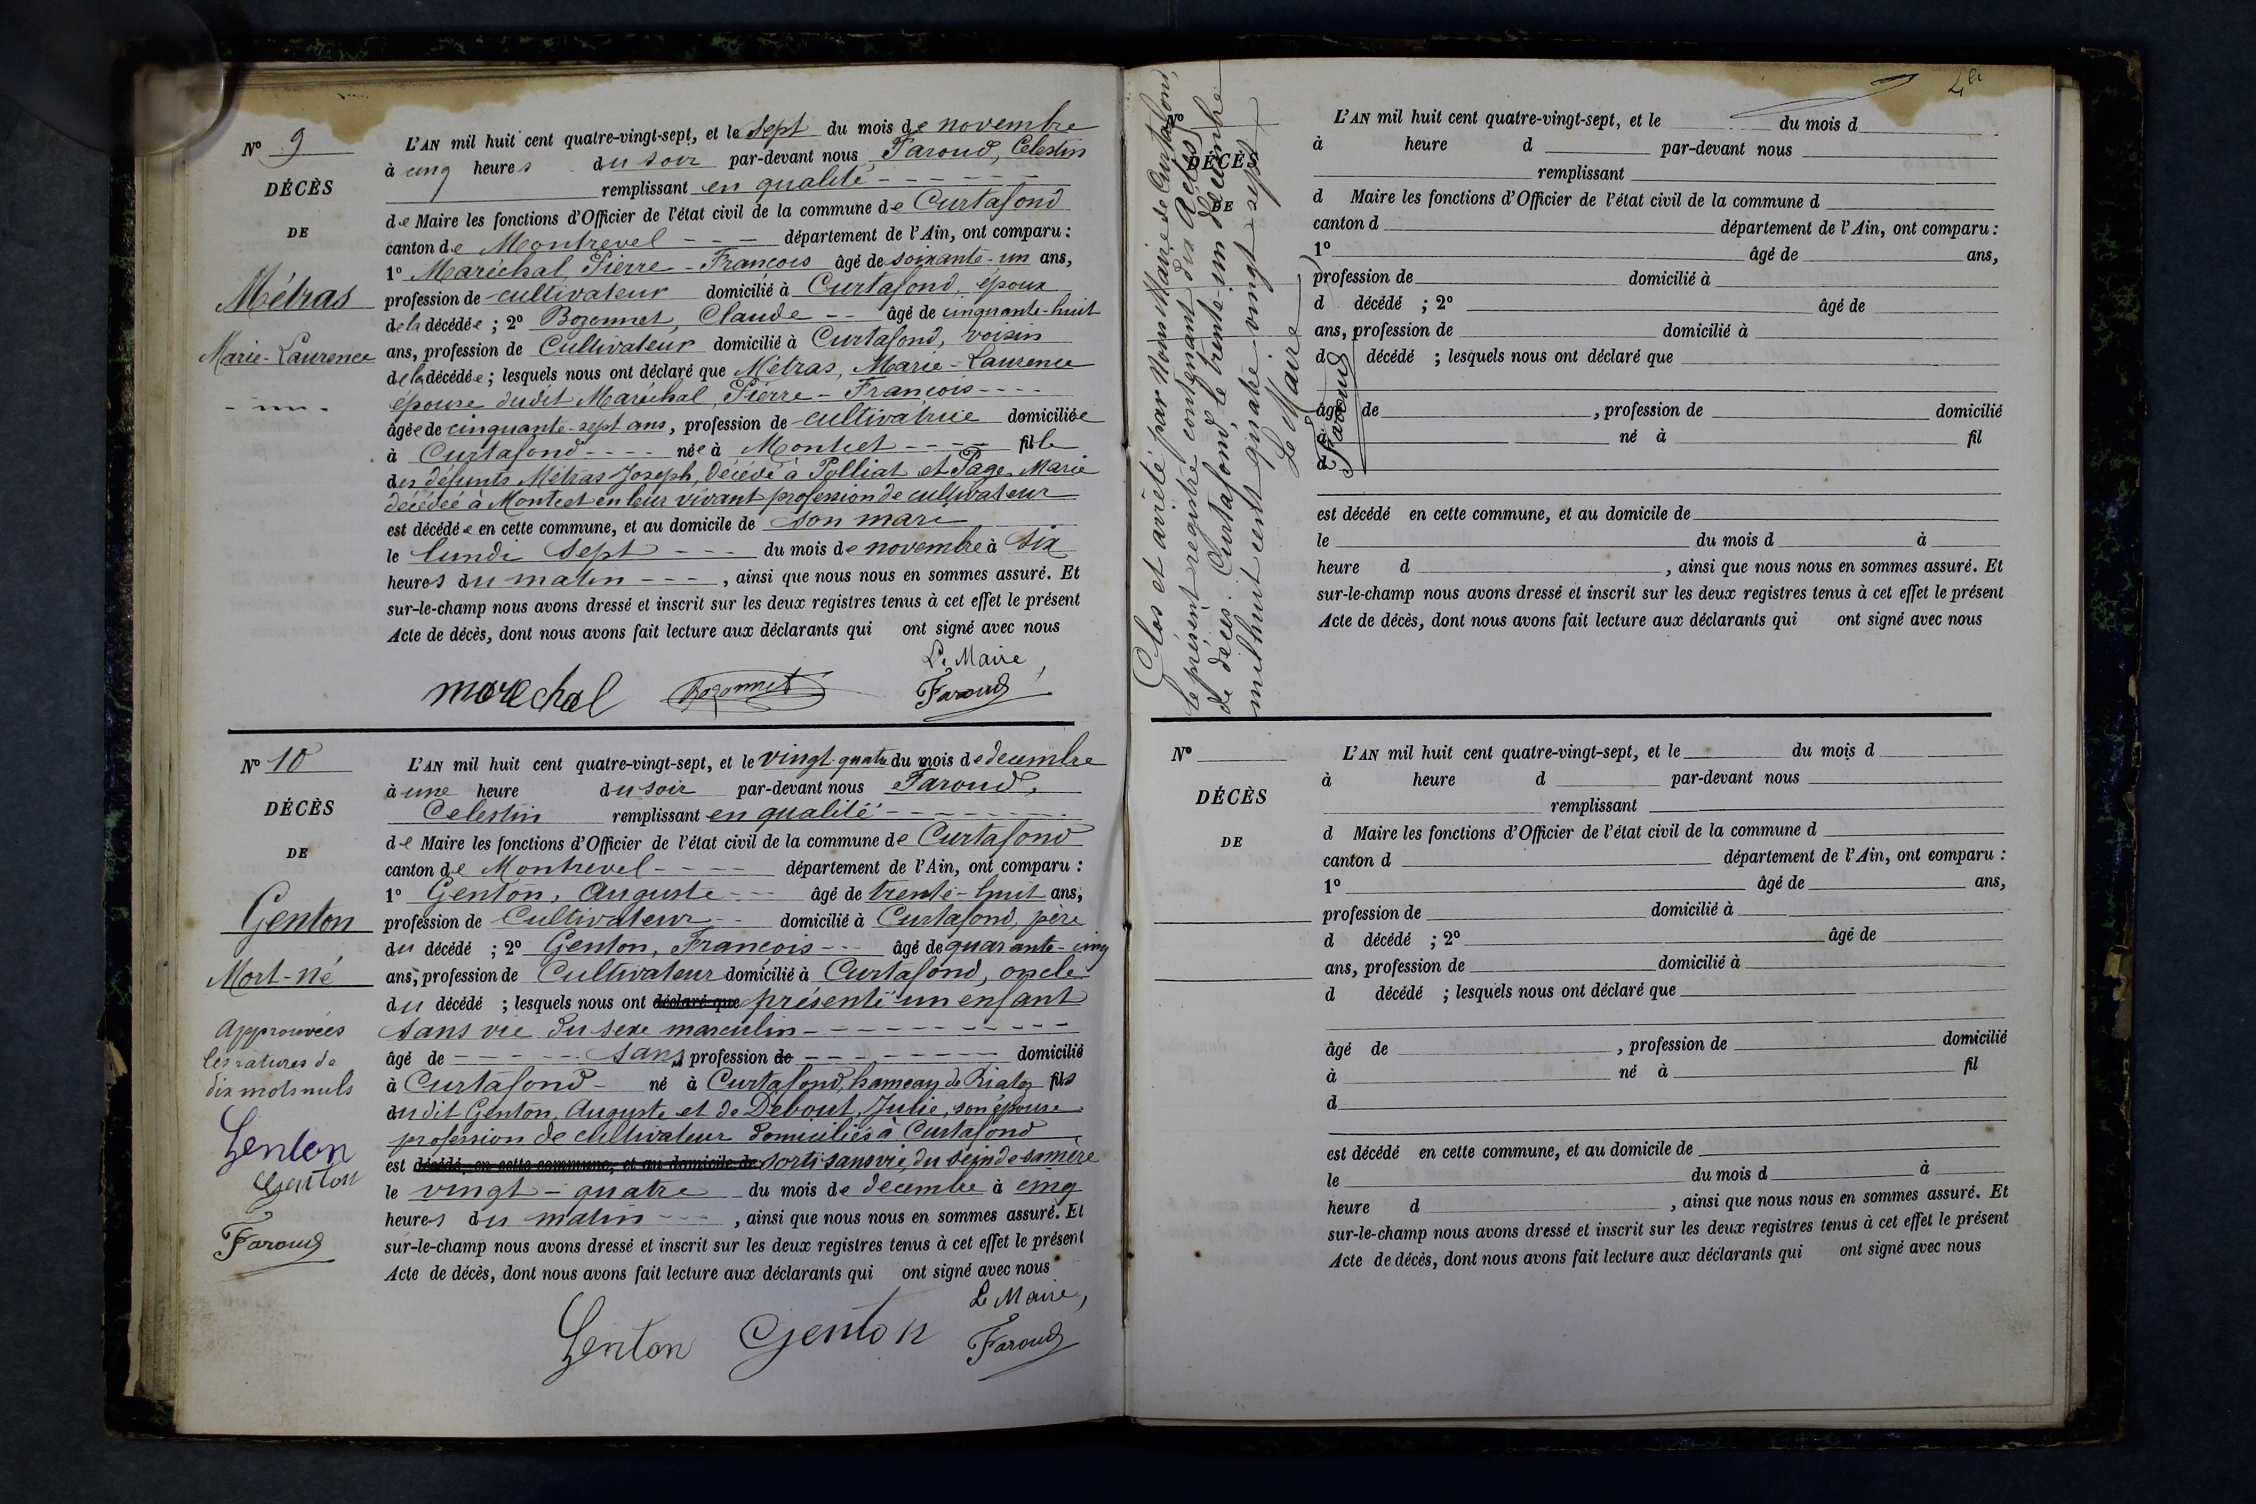 N° 9
DÉCÈS
DE
Métras
Marie-Laurence
L'AN mil huit cent quatre-vingt-sept, et le sept du mois de novembre
à cinq heures du soir par-devant nous Faroud, Celestin
remplissant en qualité
de Maire les fonctions d'Officier de l'état civil de la commune de Curtafond
canton de Montrevel département de l'Ain, ont comparu :
1° Maréchal, Pierre-François âgé de soixante-un ans,
profession de cultivateur domicilié à Curtafond, époux
de la décédée ; 2° Bozonnet, Claude âgé de cinquante-huit
ans, profession de Cultivateur domicilié à Curtafond, voisin
de la décédée ; lesquels nous ont déclaré que Métras, Marie-Laurence
épouse dudit Maréchal, Pierre-François
âgée de cinquante-sept ans, profession de cultivatrice domiciliée
à Curtafond née à Montcet fille
des défunts Métras Joseph, décédé à Polliat et Page, Marie
décédée à Montcet en leur vivant profession de cultivateur
est décédée en cette commune, et au domicile de son mari
le lundi sept du mois de novembre à six
heures du matin, ainsi que nous nous en sommes assuré. Et
sur-le-champ nous avons dressé et inscrit sur les deux registres tenus à cet effet le présent
Acte de décès, dont nous avons fait lecture aux déclarants qui ont signé avec nous
Le Maire,
marechal Bozonnet Faroud
N° 10
DÉCÈS
DE
Genton
Mort-né
Approuvées
les ratures de
dix mots nuls
Genton
Genton
Faroud
L'AN mil huit cent quatre-vingt-sept, et le vingt-quatre du mois de decembre
à une heure du soir par-devant nous Faroud,
Celestin remplissant en qualité
de Maire les fonctions d'Officier de l'état civil de la commune de Curtafond
canton de Montrevel département de l'Ain, ont comparu :
1° Genton, Auguste âgé de trente-huit ans,
profession de Cultivateur domicilié à Curtafond, père
du décédé ; 2° Genton, François âgé de quarante-cinq
ans, profession de Cultivateur domicilié à Curtafond, oncle
du décédé ; lesquels nous ont déclaré que présenté un enfant
sans vie du sexe masculin
âgé de sans profession de domicilié
à Curtafond né à Curtafond, hameau de fils
du dit Genton, Auguste et de Debout, Julie, son épouse
profession de cultivateur domiciliés à Curtafond
est décédé, en cette commune, et au domicile de sorti sans vie du sein de sa mère
le vingt-quatre du mois de decembre à cinq
heures du matin, ainsi que nous nous en sommes assuré. Et
sur-le-champ nous avons dressé et inscrit sur les deux registres tenus à cet effet le présent
Acte de décès, dont nous avons fait lecture aux déclarants qui ont signé avec nous
Le Maire,
Genton Genton Faroud
Clos et arrêté par Nous Maire de Curtafond,
le présent registre contenant dix Actes
de décès. Curtafond, le trente-un décembre
mil huit cent quatre-vingt-sept
Le Maire
Faroud
N°
DÉCÈS
DE
L'AN mil huit cent quatre-vingt-sept, et le du mois d
à heure d par-devant nous
remplissant
d Maire les fonctions d'Officier de l'état civil de la commune d
canton d département de l'Ain, ont comparu :
1° âgé de ans,
profession de domicilié à
d décédé ; 2° âgé de
ans, profession de domicilié à
d décédé ; lesquels nous ont déclaré que
âgé de , profession de domicilié
à né à fil
d
est décédé en cette commune, et au domicile de
le du mois d à
heure d , ainsi que nous nous en sommes assuré. Et
sur-le-champ nous avons dressé et inscrit sur les deux registres tenus à cet effet le présent
Acte de décès, dont nous avons fait lecture aux déclarants qui ont signé avec nous
N°
DÉCÈS
DE
L'AN mil huit cent quatre-vingt-sept, et le du mois d
à heure d par-devant nous
remplissant
d Maire les fonctions d'Officier de l'état civil de la commune d
canton d département de l'Ain, ont comparu :
1° âgé de ans,
profession de domicilié à
d décédé ; 2° âgé de
ans, profession de domicilié à
d décédé ; lesquels nous ont déclaré que
âgé de , profession de domicilié
à né à fil
d
est décédé en cette commune, et au domicile de
le du mois d à
heure d , ainsi que nous nous en sommes assuré. Et
sur-le-champ nous avons dressé et inscrit sur les deux registres tenus à cet effet le présent
Acte de décès, dont nous avons fait lecture aux déclarants qui ont signé avec nous